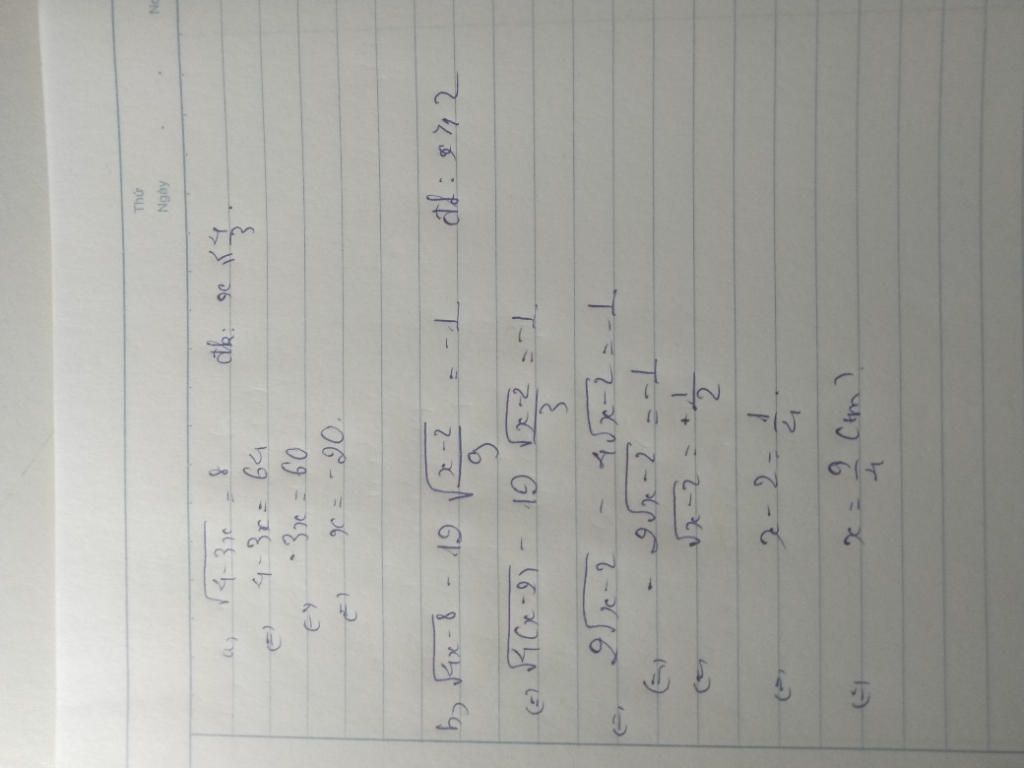 Thứ
Ngày
a, √(4-3x) = 8 đk: x ≤ 4/3.
(=) 4-3x = 64
(=) -3x = 60
(=) x = -20.
b, √(4x-8) - 12 √((x-2)/9) = -1 đk: x ≥ 2
(=) √(4(x-2)) - 12 √(x-2)/3 = -1
(=) 2√(x-2) - 4√(x-2) = -1
(=) -2√(x-2) = -1
(=) √(x-2) = +1/2
(=) x-2 = 1/4
(=) x = 9/4 (tm)